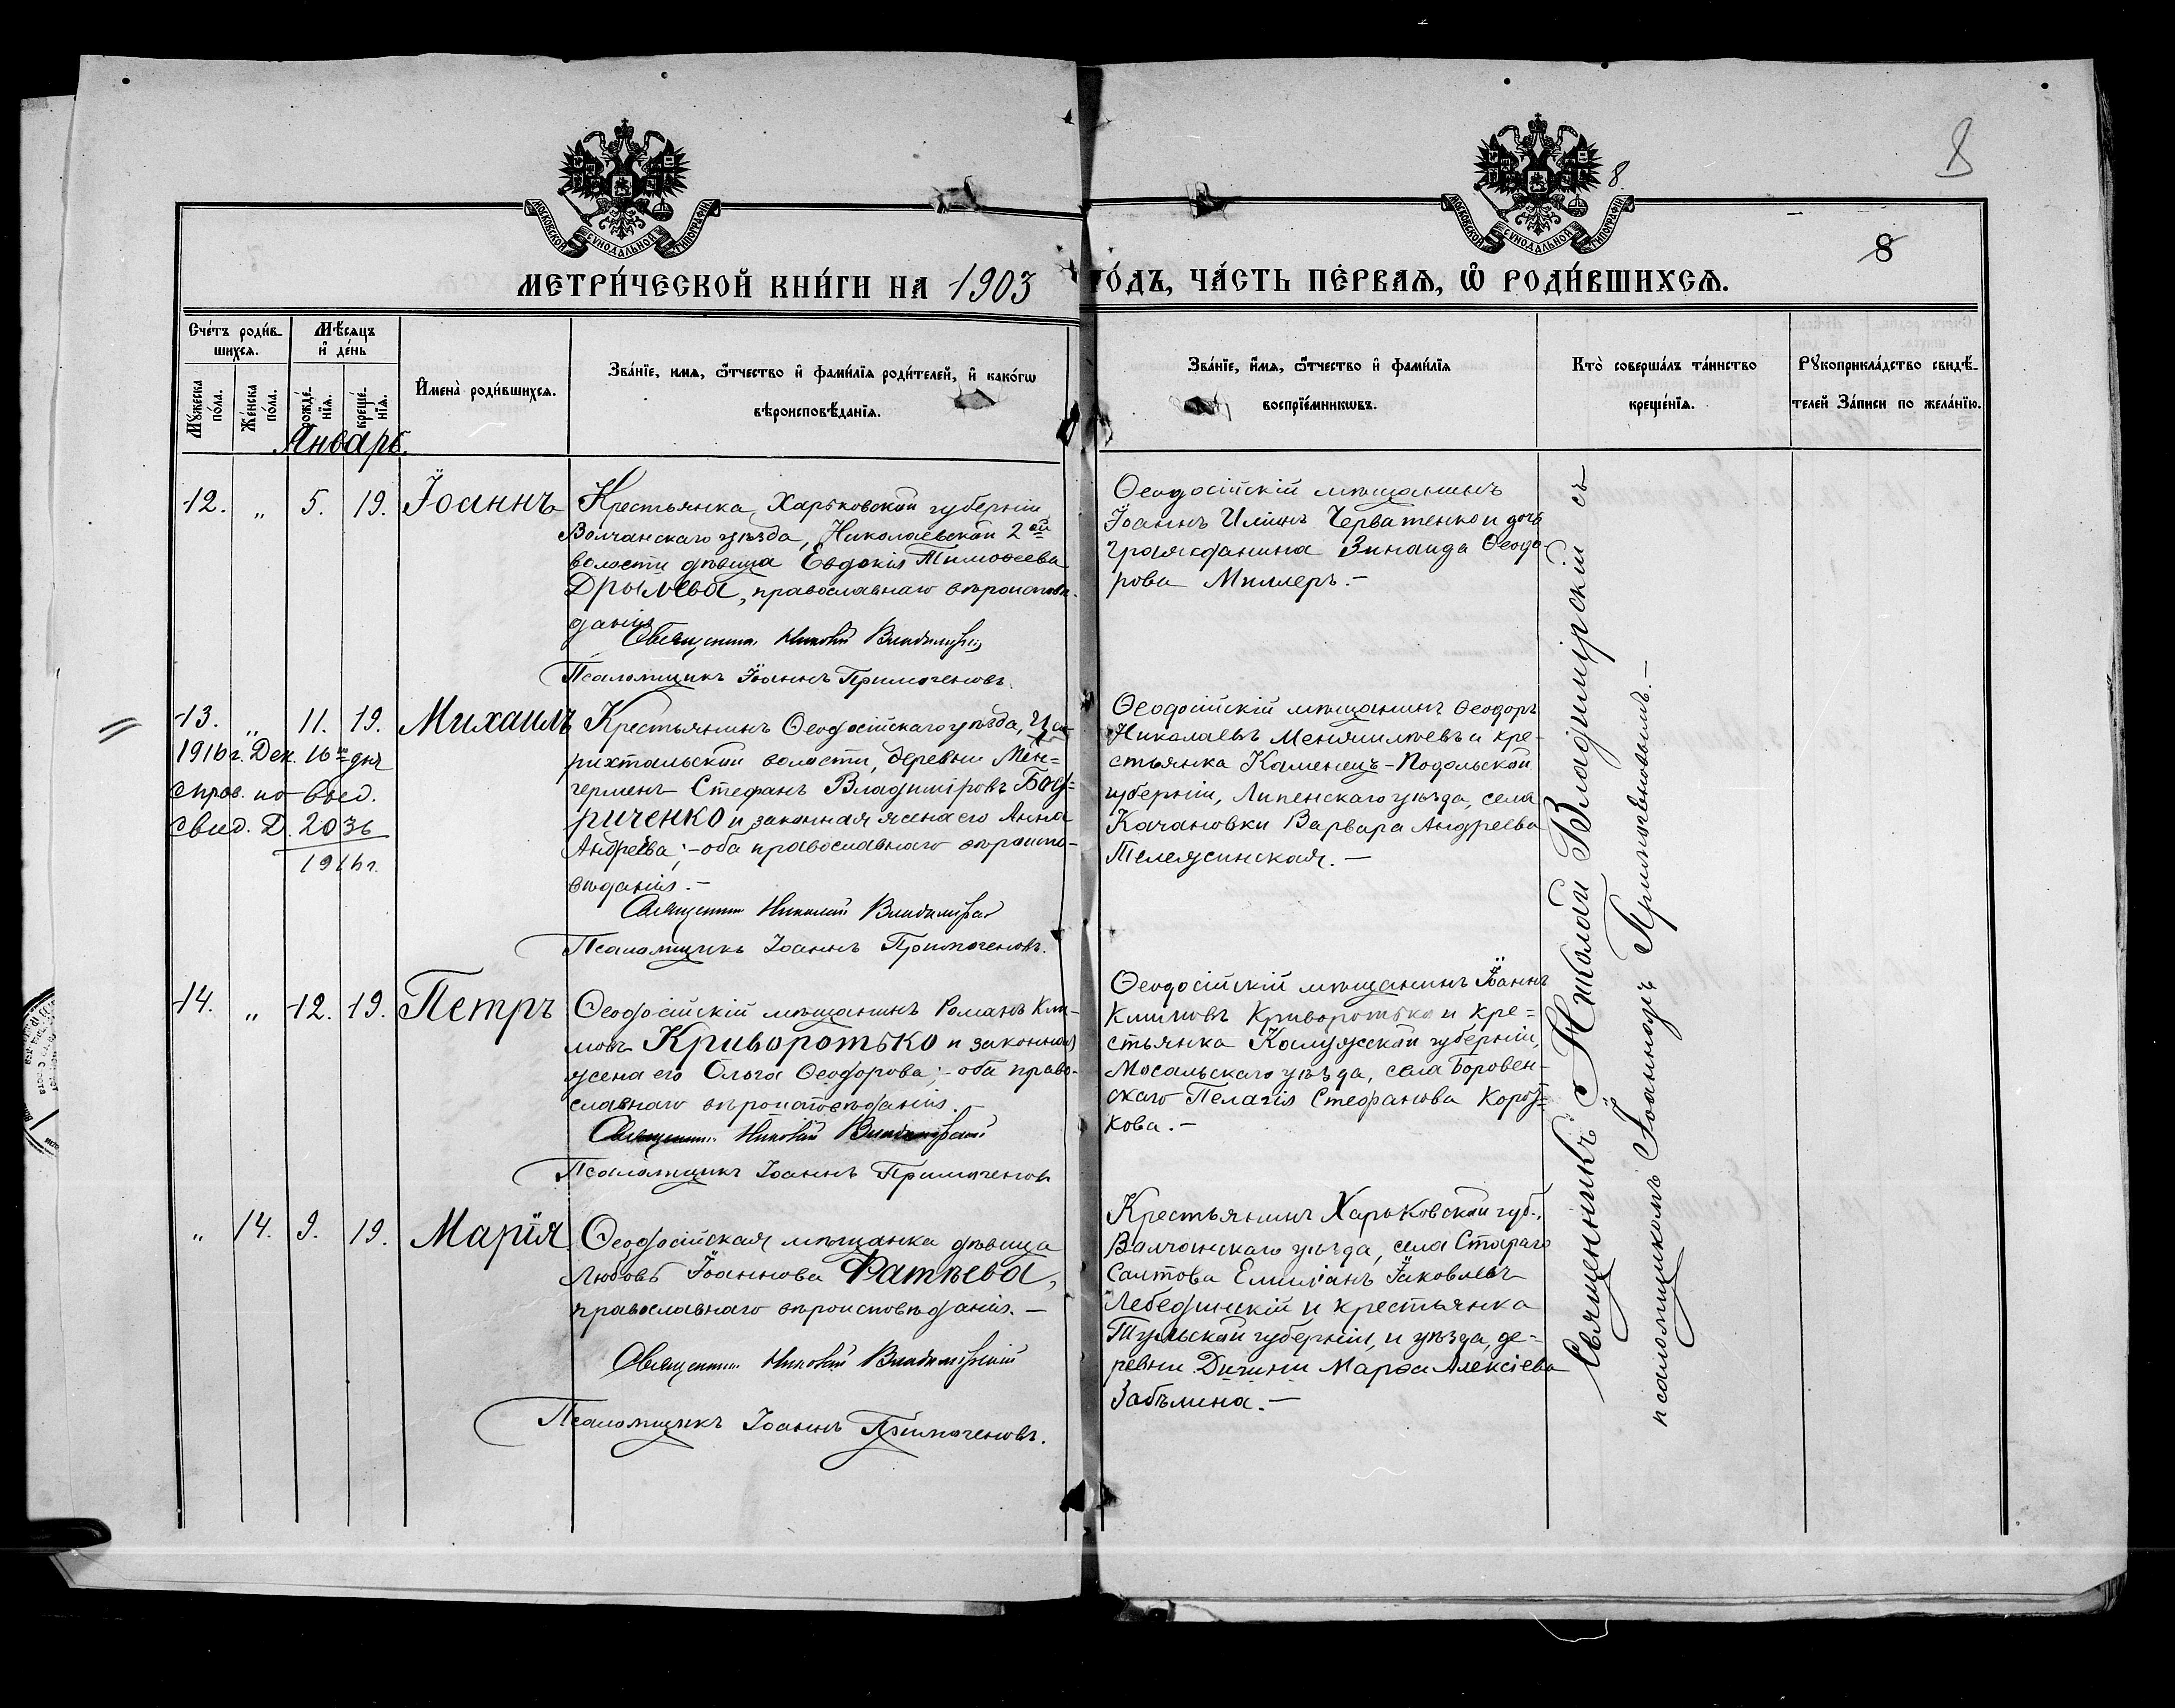 8
8.
8
МОСКОВСКОЙ СѴНОДАЛЬНОЙ ТИПОГРАФІИ
МОСКОВСКОЙ СѴНОДАЛЬНОЙ ТИПОГРАФІИ
МЕТРИ́ЧЕСКОЙ КНИ́ГИ НА 1903 ГО́ДЪ, ЧА́СТЬ ПЕ́РВАѦ, Ѡ҆ РОДИ́ВШИХСѦ.
Сче́тъ роди́в-
шихсѧ.
Мѣ́сѧцъ
и҆ де́нь
Мꙋ́жеска
по́ла.
Же́нска
по́ла.
рожде́-
нїѧ.
креще́-
нїѧ.
И҆мена̀ роди́вшихсѧ.
Зва́нїе, имѧ, ѻ҆́тчество и҆ фами́лїѧ роди́телей, и҆ како́гѡ
вѣроисповѣ́данїѧ.
Зва́нїе, и҆́мѧ, ѻ҆́тчество и҆ фами́лїѧ
воспрїе́мникѡвъ.
Кто̀ соверша́лъ та́инство
креще́нїѧ.
Рꙋкоприкла́дство свидѣ́-
телей За́писи по жела́нїю.
Январь.
12. „ 5. 19. Іоаннъ
Крестьянка Харьковской губерніи
Волчанскаго уѣзда, Николаевской 2ой
волости дѣвица Евдокія Тимоѳеева
Дрылева, православнаго вѣроисповѣ-
данія
Священникъ Николай Владимірскій
Псаломщикъ Іоаннъ Примоченовъ.
Ѳеодосійскій мѣщанинъ
Іоаннъ Илiинъ Черватенко и дочь
гражданина Зинаида Ѳеодо-
рова Миллеръ.–
13. „ 11. 19. Михаилъ
1916 г. Дек. 16го дня
справ. но воед.
свид. Д. 2036
1916 г.
Крестьянинъ Ѳеодосійскаго уѣзда, Цю-
рихтальской волости, деревни Мен-
герменъ Стефанъ Владиміровъ Бод-
риченко и законная жена его Анна
Андреева;–оба православнаго вѣроиспо-
вѣданія.–
Священникъ Николай Владимірскій
Псаломщикъ Іоаннъ Примоченовъ.
Ѳеодосійскій мѣщанинъ Ѳеодоръ
Николаевъ и кре-
стьянка Каменецъ-Подольской
губерніи, Липенскаго уѣзда, села
Качановки Варвара Андреева
Тележинская.–
14. „ 12. 19. Петръ
Ѳеодосійскій мѣщанинъ Романъ Кли-
мовъ Криворотько и законная
жена его Ольга Ѳеодорова;–оба право-
славнаго вѣроисповѣданія.–
Священникъ Николай Владимірскій
Псаломщикъ Іоаннъ Примоченовъ
Ѳеодосійскій мѣщанинъ Іоаннъ
Климовъ Криворотько и кре=
стьянка Калужской губерніи,
Мосальскаго уѣзда, села Боровен-
скаго Пелагія Стефанова Короб-
кова.–
„ 14. 9. 19. Марія
Ѳеодосійская мѣщанка дѣвица
Любовь Іоаннова Фатѣева,
православнаго вѣроисповѣданія.–
Священникъ Николай Владимірскій
Псаломщикъ Іоаннъ Примоченовъ.
Крестьянинъ Харьковской губ.,
Волчанскаго уѣзда, села Стараго
Салтова Емиліанъ Іаковлевъ
Лебединскій и крестьянка
Тульской губерніи, и уѣзда, де-
ревни Дичини Марѳа Алексіева
Забѣлина.–
Священникъ Николай Владимірскій съ
псаломщикомъ Іоанномъ Примоченовымъ.–